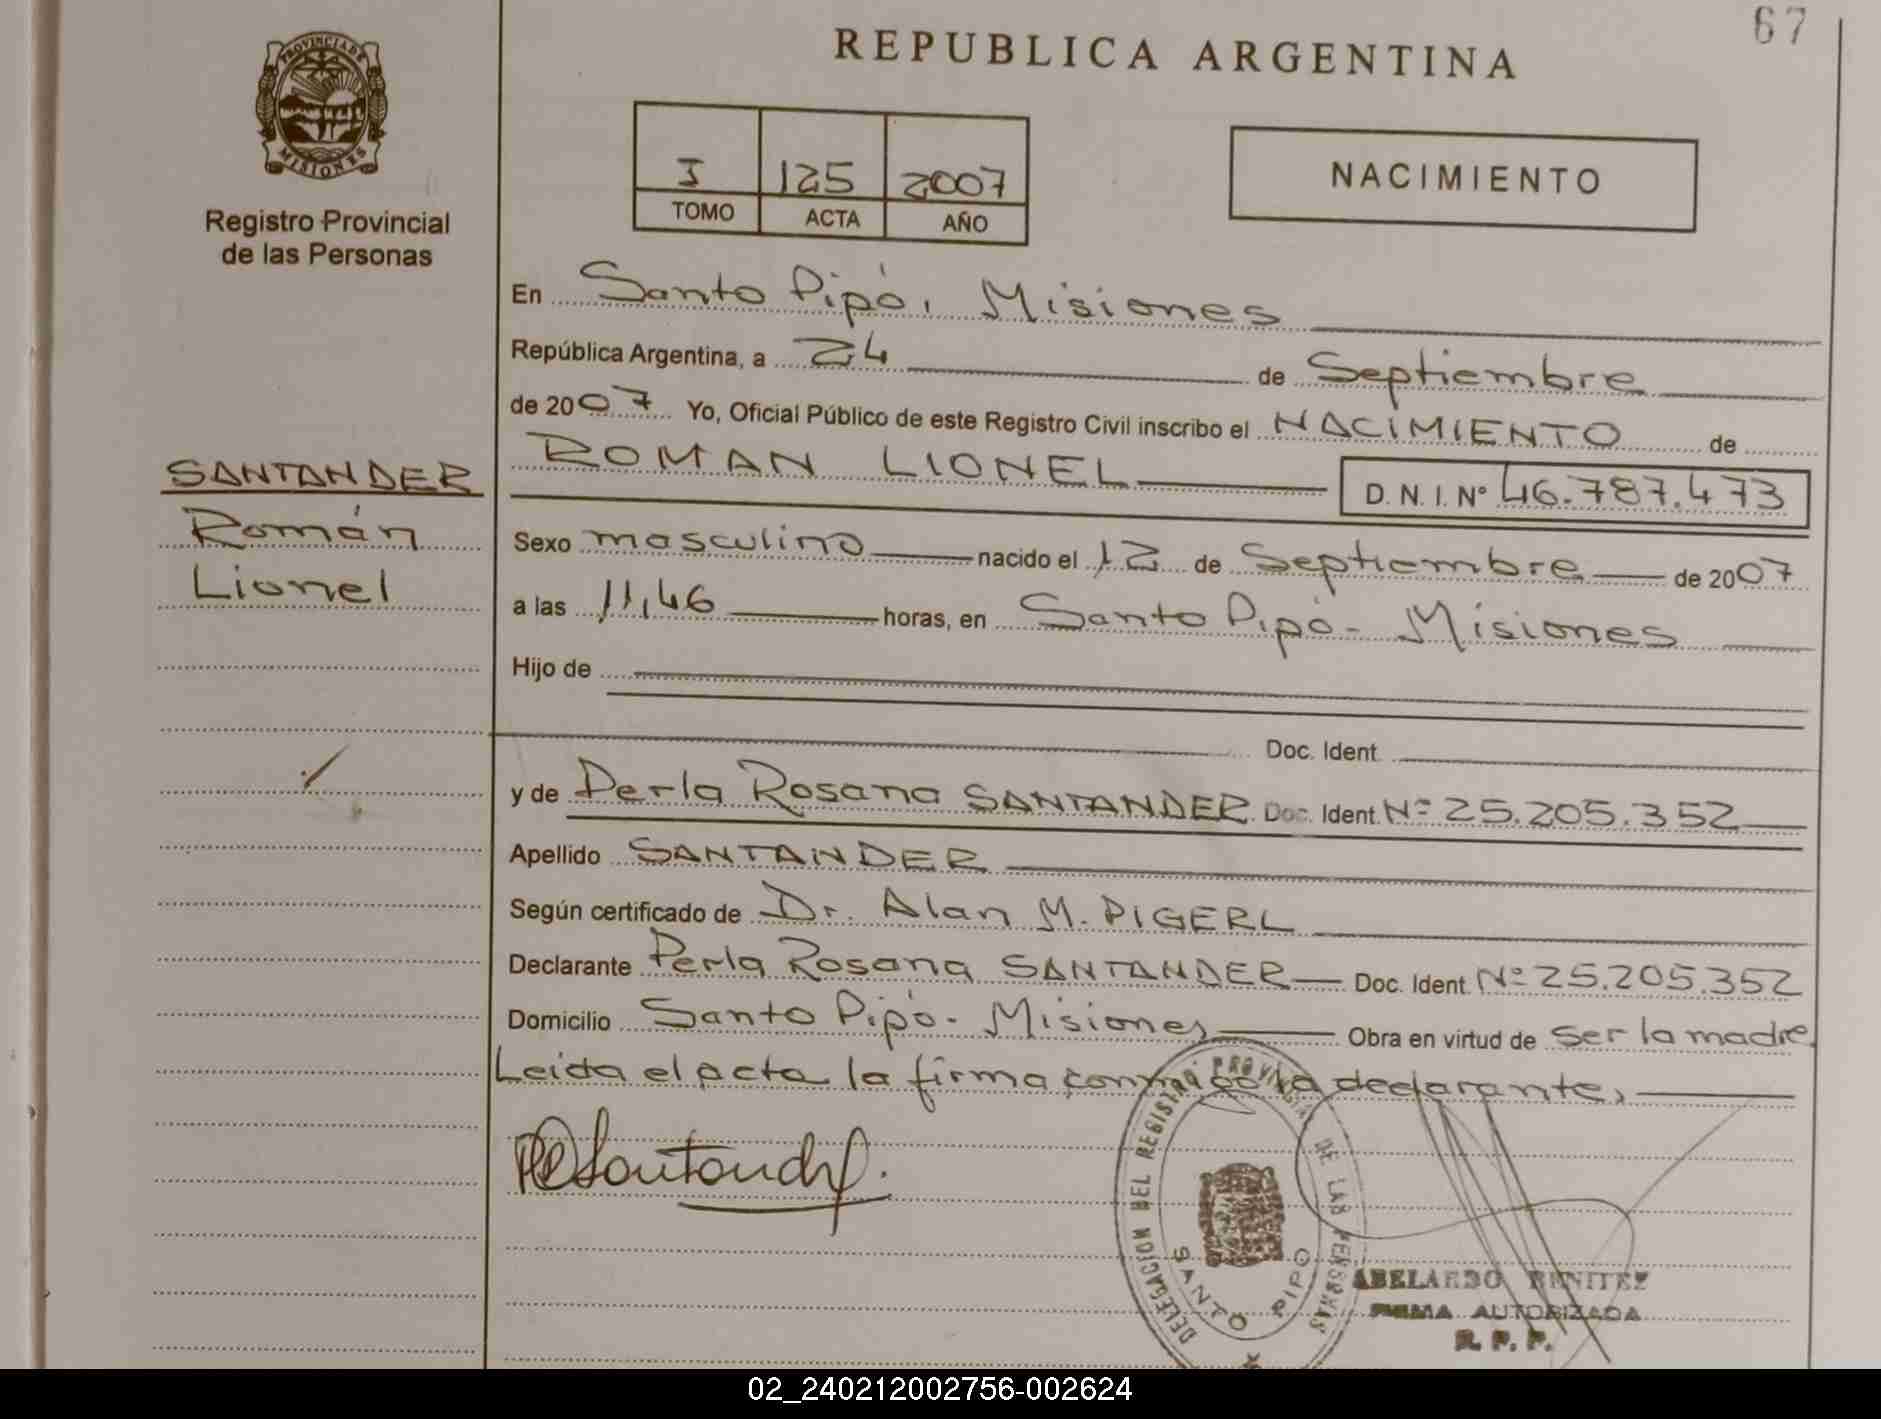 67
REPUBLICA ARGENTINA
PROVINCIA DE MISIONES
Registro Provincial
de las Personas
I 125 2007
TOMO ACTA AÑO
NACIMIENTO
En Santo Pipó, Misiones
República Argentina, a 24 de Septiembre
de 2007 Yo, Oficial Público de este Registro Civil inscribo el NACIMIENTO de
ROMAN LIONEL D. N. I. Nº 46.787.473
SANTANDER
Román
Lionel
Sexo masculino nacido el 12 de Septiembre de 2007
a las 11,46 horas, en Santo Pipó - Misiones
Hijo de
Doc. Ident.
y de Perla Rosana SANTANDER Doc. Ident. Nº 25.205.352
Apellido SANTANDER
Según certificado de Dr. Alan M. PIGERL
Declarante Perla Rosana SANTANDER Doc. Ident. Nº 25.205.352
Domicilio Santo Pipó - Misiones Obra en virtud de ser la madre
Leida el acta la firma conmigo la declarante,
PRSantander.
DELEGACION DEL REGISTRO PROVINCIAL DE LAS PERSONAS
SANTO PIPO
ABELARDO BENITEZ
FIRMA AUTORIZADA
R. P. P.
02_240212002756-002624